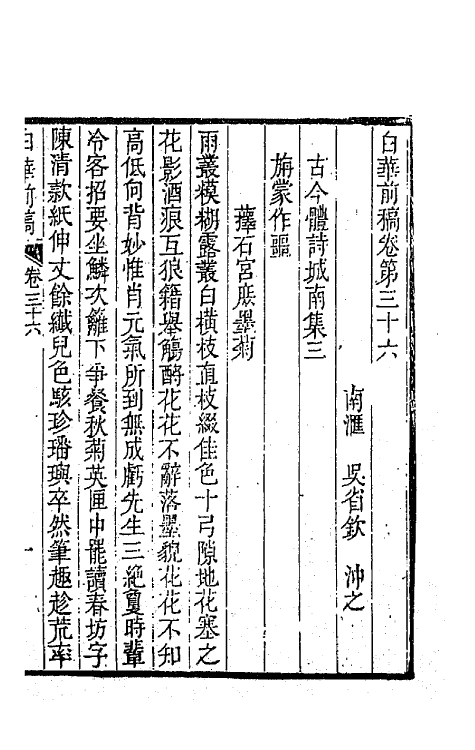 白華前稿卷第三十六
南滙 吳省欽 沖之
古今體詩城南集三
旃蒙作噩
蘀石宮庶墨菊
雨叢模糊露叢白橫枝直枝綴佳色十弓隙地花塞之
花影酒痕互狼籍舉觴酹花花不辭落墨貌花花不知
高低向背妙惟肖元氣所到無成虧先生三絶夐時輩
冷客招要坐鱗次籬下爭餐秋菊英匣中罷讀春坊字
陳清款紙伸丈餘纖兒色駭珍璠璵卒然筆趣趁荒率
白華前稿 卷三十六 一